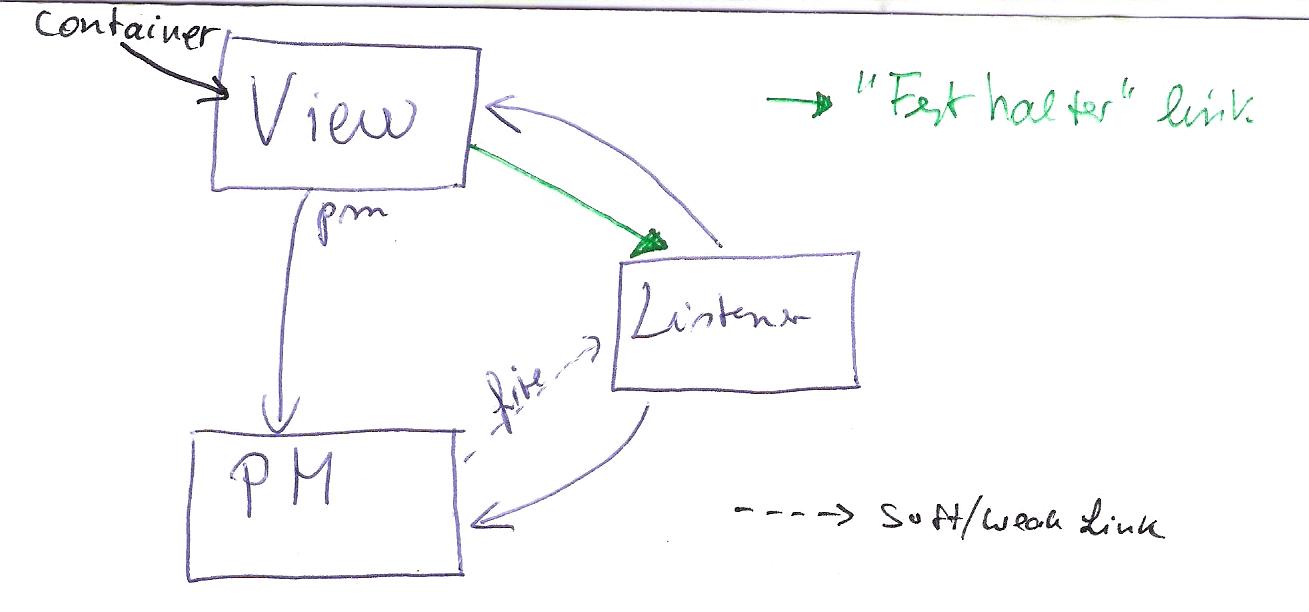 Container
View
"Festhalter" link
pm
Listener
fire
PM
Soft/weak Link